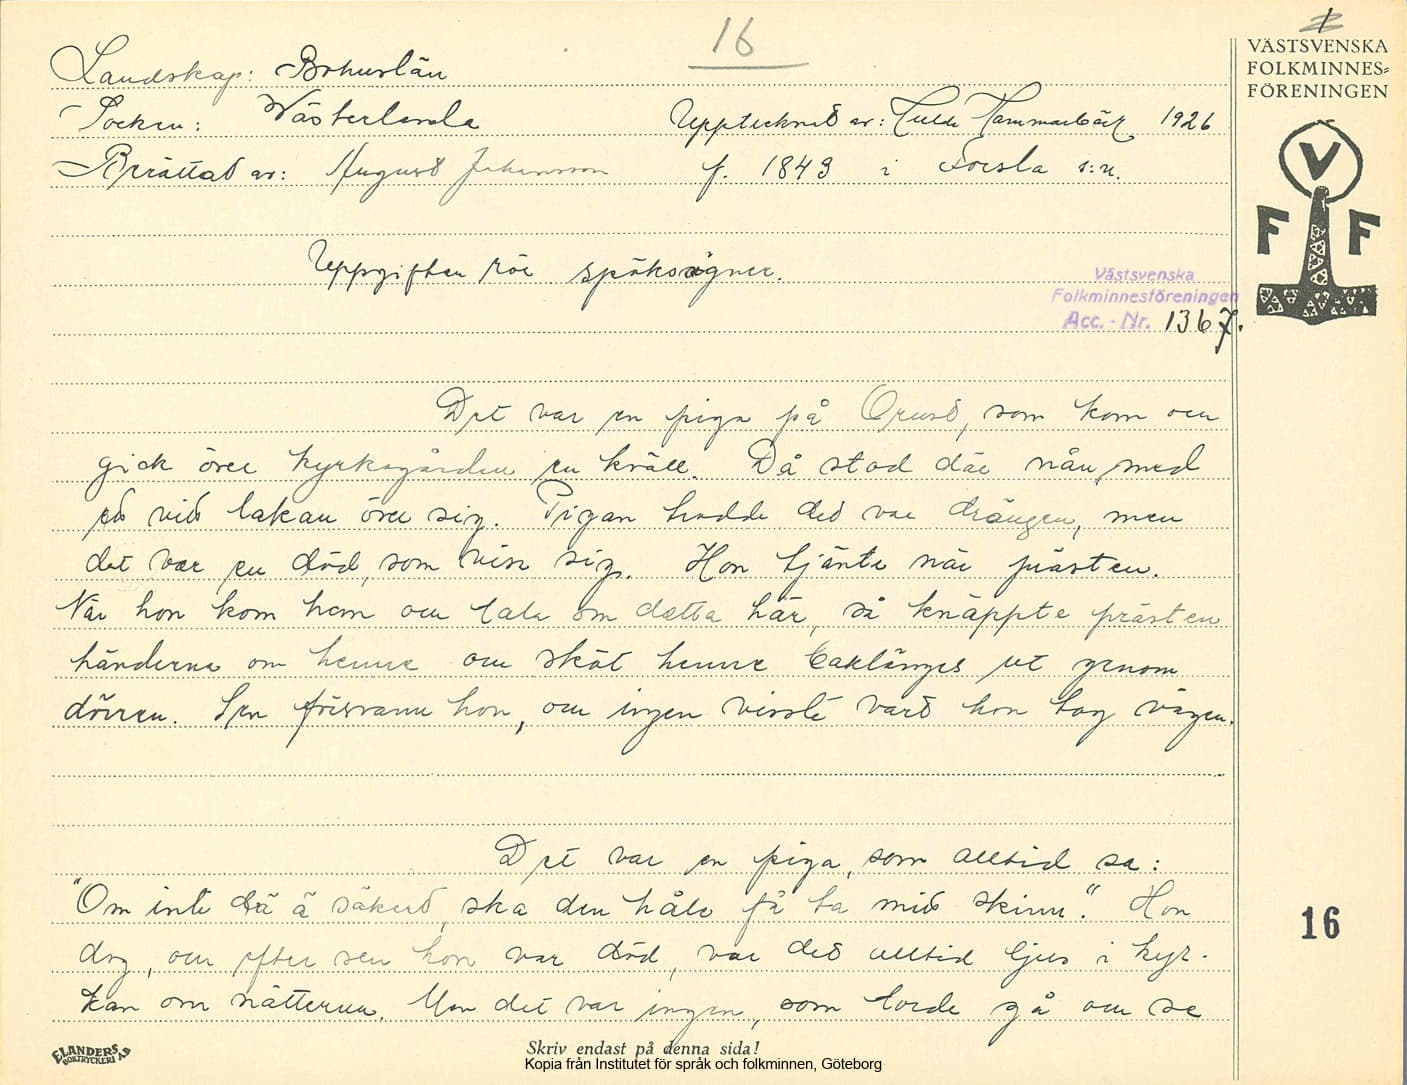 16
1
VÄSTSVENSKA
FOLKMINNES=
FÖRENINGEN
Landskap: Bohuslän
Socken: Västerlanda Upptecknat av: Tulli Hammarbäck 1926
Berättat av: August Johansson f. 1843 i Forsla s:n.
V
F F
Uppgiften rör spöksägner.
Västsvenska
Folkminnesföreningen
Acc. - Nr. 1367.
Det var en piga på Orust, som kom och
gick över kyrkogården en kväll. Då stod där nån med
ett vitt lakan över sig. Pigan trodde det var drängen, men
det var en död, som viste sig. Hon tjänte när prästen.
När hon kom hem och tala om detta här, så knäppte prästen
händerna om henne och sköt henne baklänges ut genom
dörren. Sen försvann hon, och ingen visste vart hon tog vägen.
Det var en piga, som alltid sa:
"Om inte dä ä säkert, ska den håle få ta mitt skinn." Hon
dog, och efter sen hon var död, var det alltid ljus i kyr-
kan om nätterna. Men det var ingen, som torde gå och se
16
ELANDERS
BOKTRYCKERI AB
Skriv endast på denna sida!
Kopia från Institutet för språk och folkminnen, Göteborg